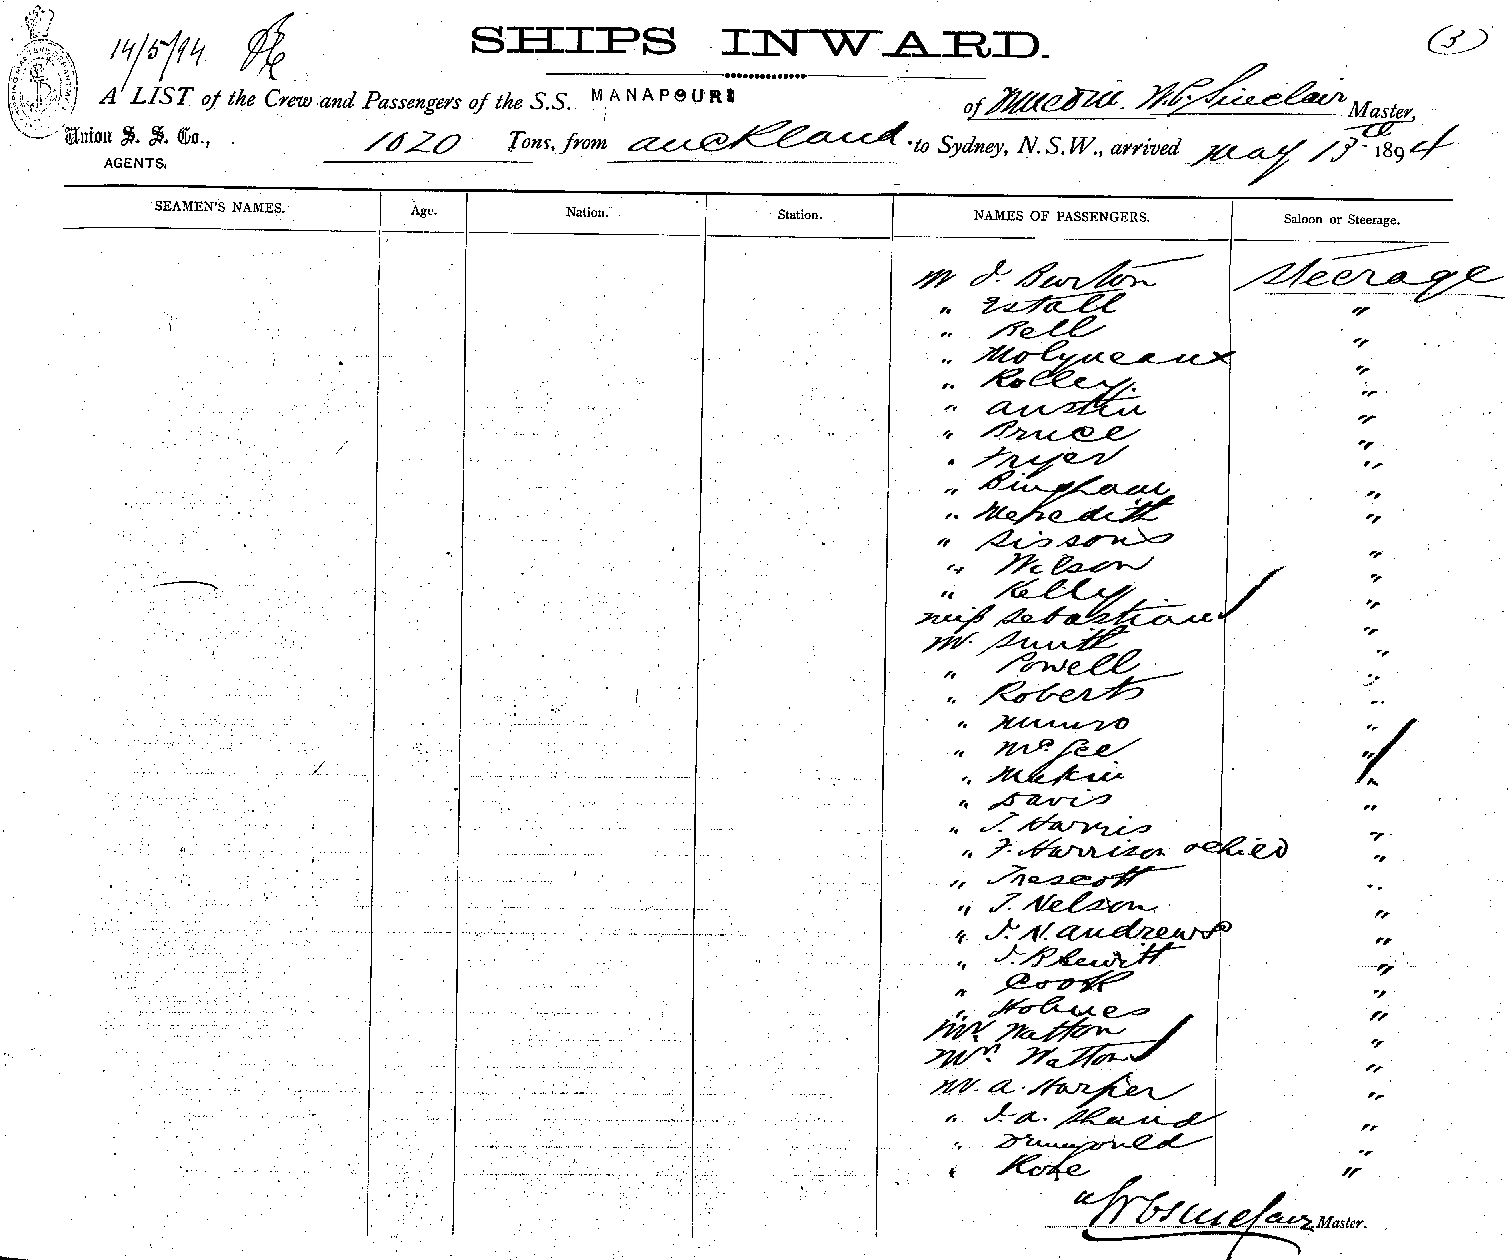 14/5/94
(3)
SHIPS INWARD.
A LIST of the Crew and Passengers of the S.S. MANAPOURI of W. C. Sinclair Master,
Union S. S. Co., 1020 Tons, from Auckland to Sydney, N.S.W., arrived May 13th 1894
AGENTS.
SEAMEN'S NAMES. Age. Nation. Station. NAMES OF PASSENGERS. Saloon or Steerage.
Mr J. Burton Steerage
" Estall "
" Bell "
" Molyneaux "
" Rolley "
" Austin "
" Bruce "
" Fryer "
" Bingham "
" Meredith "
" Sissons "
" Wilson "
" Kelly "
Miss Sebastian "
Mr. Smith "
" Powell "
" Roberts "
" Munro "
" McGee "
" Makin "
" Davis "
" T. Harris "
" F. Harrison & child "
" Trescott "
" T. Nelson "
" J. N. Andrews "
" J. R. Hewitt "
" Cook "
" Holmes "
Mr. Watton "
Mrs. Watton "
Mr. A. Harper "
" J. A. Shand "
" "
" Rose "
W C Sinclair Master.